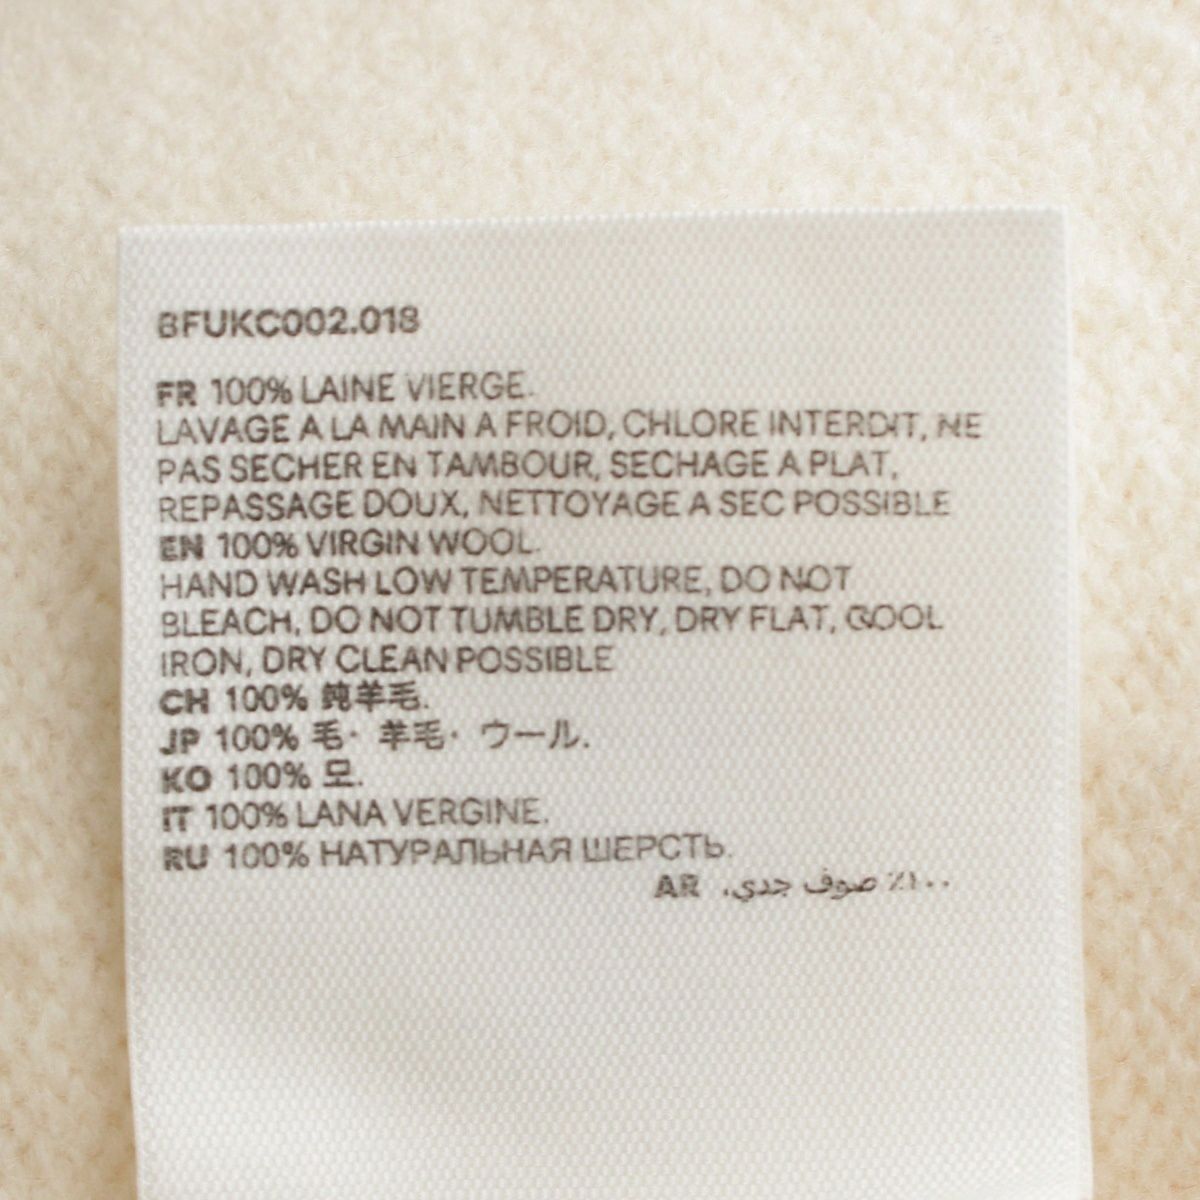 BFUKC002.018
FR 100% LAINE VIERGE.
LAVAGE A LA MAIN A FROID, CHLORE INTERDIT, NE
PAS SECHER EN TAMBOUR, SECHAGE A PLAT,
REPASSAGE DOUX, NETTOYAGE A SEC POSSIBLE
EN 100% VIRGIN WOOL.
HAND WASH LOW TEMPERATURE, DO NOT
BLEACH, DO NOT TUMBLE DRY, DRY FLAT, COOL
IRON, DRY CLEAN POSSIBLE
CH 100% 純羊毛.
JP 100% 毛· 羊毛· ウール.
KO 100% 모.
IT 100% LANA VERGINE.
RU 100% НАТУРАЛЬНАЯ ШЕРСТЬ.
AR ١٠٠٪ صوف جدي.